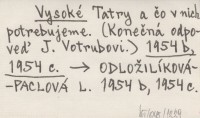 Vysoké Tatry a čo v nich
potrebujeme. (Konečná odpo-
veď J. Votrubovi.) 1954 b,
1954 c. → ODLOŽILÍKOVÁ-
-PACLOVÁ L. 1954 b, 1954 c.